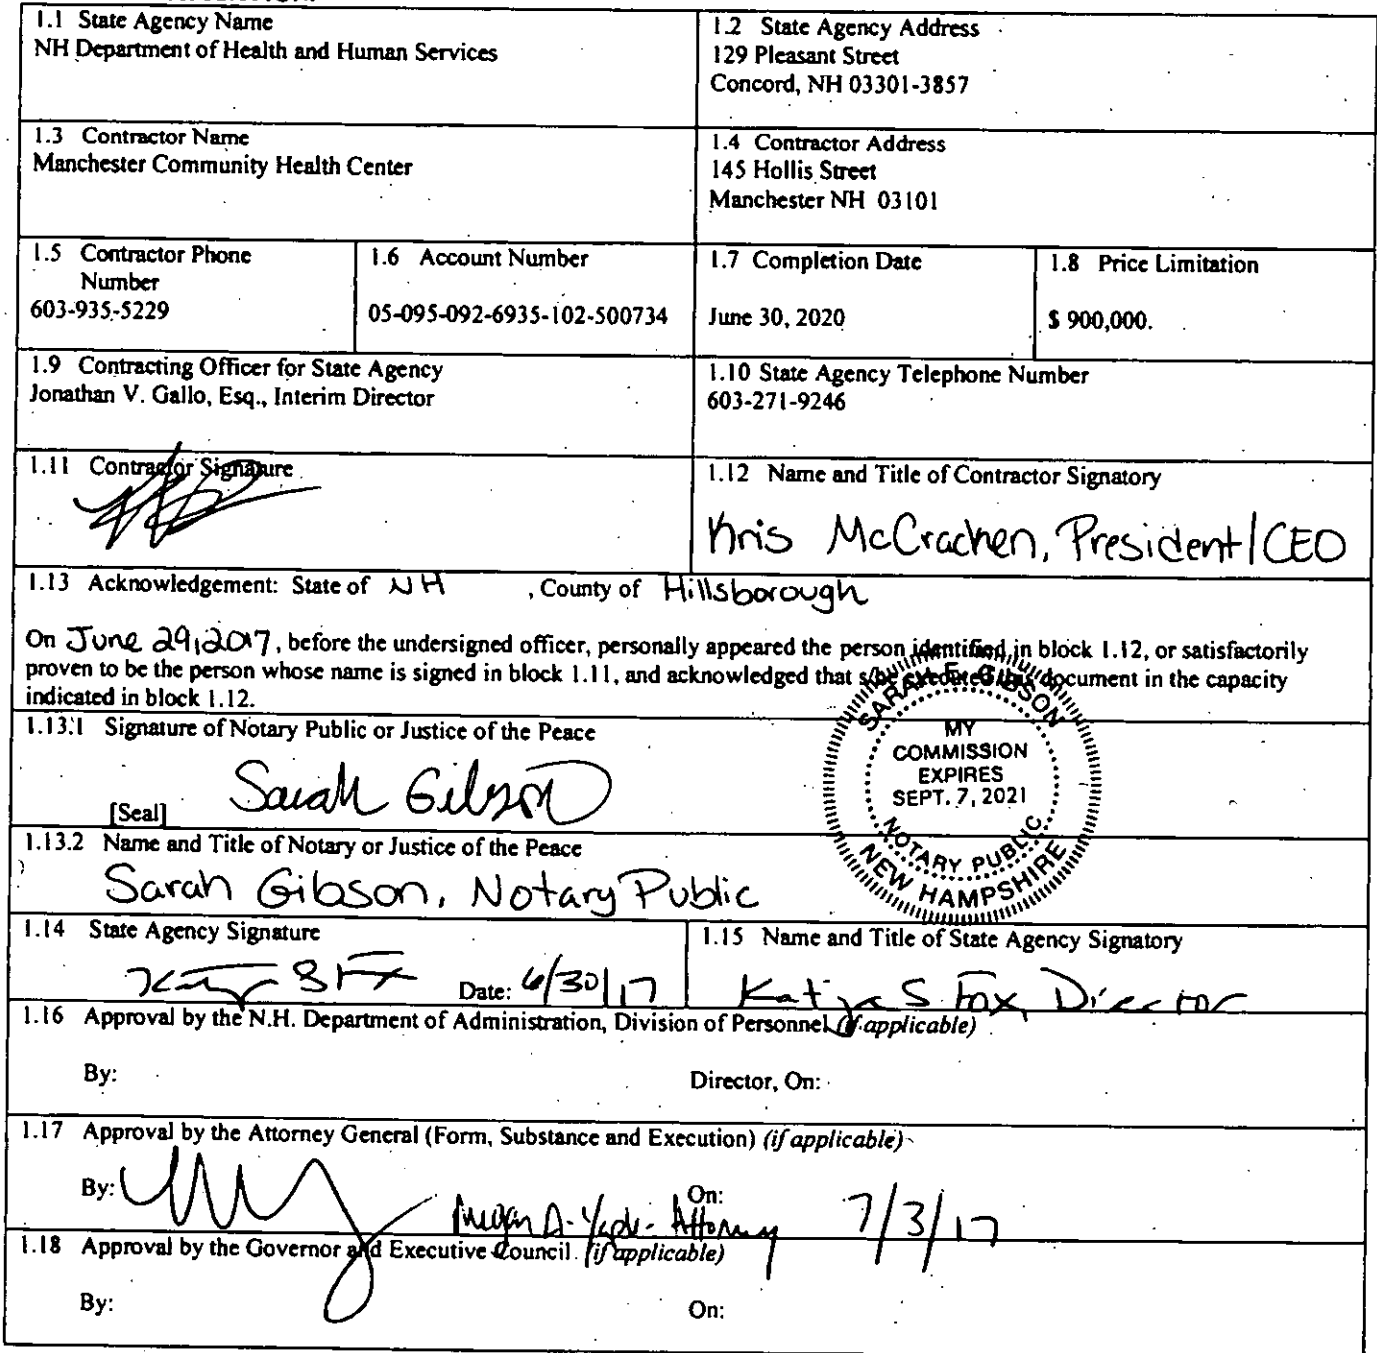 1.1 State Agency Name
NH Department of Health and Human Services
1.2 State Agency Address
129 Pleasant Street
Concord, NH 03301-3857
1.3 Contractor Name
Manchester Community Health Center
1.4 Contractor Address
145 Hollis Street
Manchester NH 03101
1.5 Contractor Phone
Number
603-935-5229
1.6 Account Number
05-095-092-6935-102-500734
1.7 Completion Date
June 30, 2020
1.8 Price Limitation
$ 900,000.
1.9 Contracting Officer for State Agency
Jonathan V. Gallo, Esq., Interim Director
1.10 State Agency Telephone Number
603-271-9246
1.11 Contractor Signature
1.12 Name and Title of Contractor Signatory
Kris McCracken, President/CEO
1.13 Acknowledgement: State of NH , County of Hillsborough
On June 29, 2017, before the undersigned officer, personally appeared the person identified in block 1.12, or satisfactorily
proven to be the person whose name is signed in block 1.11, and acknowledged that s/he executed this document in the capacity
indicated in block 1.12.
1.13.1 Signature of Notary Public or Justice of the Peace
Sarah Gibson
[Seal]
SARAH E. GIBSON
MY
COMMISSION
EXPIRES
SEPT. 7, 2021
NOTARY PUBLIC
NEW HAMPSHIRE
1.13.2 Name and Title of Notary or Justice of the Peace
Sarah Gibson, Notary Public
1.14 State Agency Signature
Date: 6/30/17
1.15 Name and Title of State Agency Signatory
Katja S. Fox, Director
1.16 Approval by the N.H. Department of Administration, Division of Personnel (if applicable)
By:
Director, On:
1.17 Approval by the Attorney General (Form, Substance and Execution) (if applicable)
By:
Megan A. - Attorney
On:
7/3/17
1.18 Approval by the Governor and Executive Council (if applicable)
By:
On: